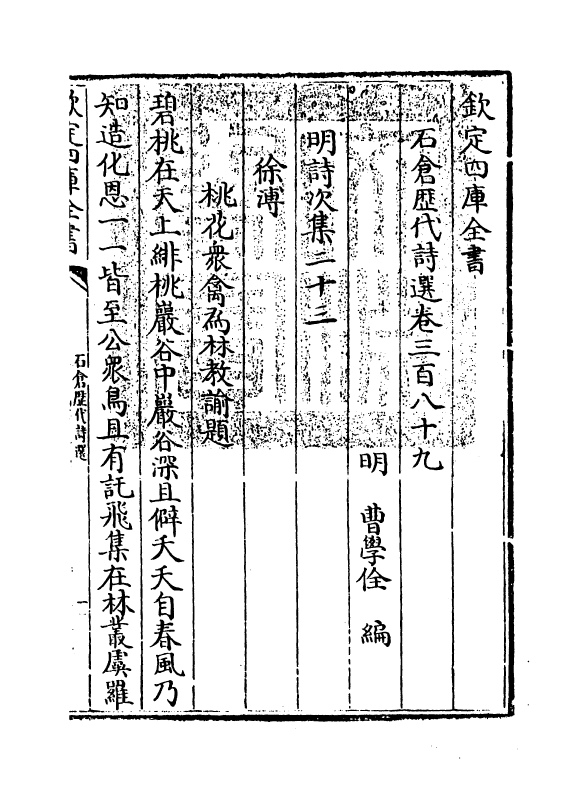 欽定四庫全書
石倉歴代詩選卷三百八十九
明 曹學佺 編
明詩次集二十三
徐溥
桃花衆禽為林教諭題
碧桃在天上緋桃巖谷中巖谷深且僻夭夭自春風乃
知造化恩一一皆至公衆鳥且有託飛集在林叢虞羅
欽定四庫全書
石倉歴代詩選
一